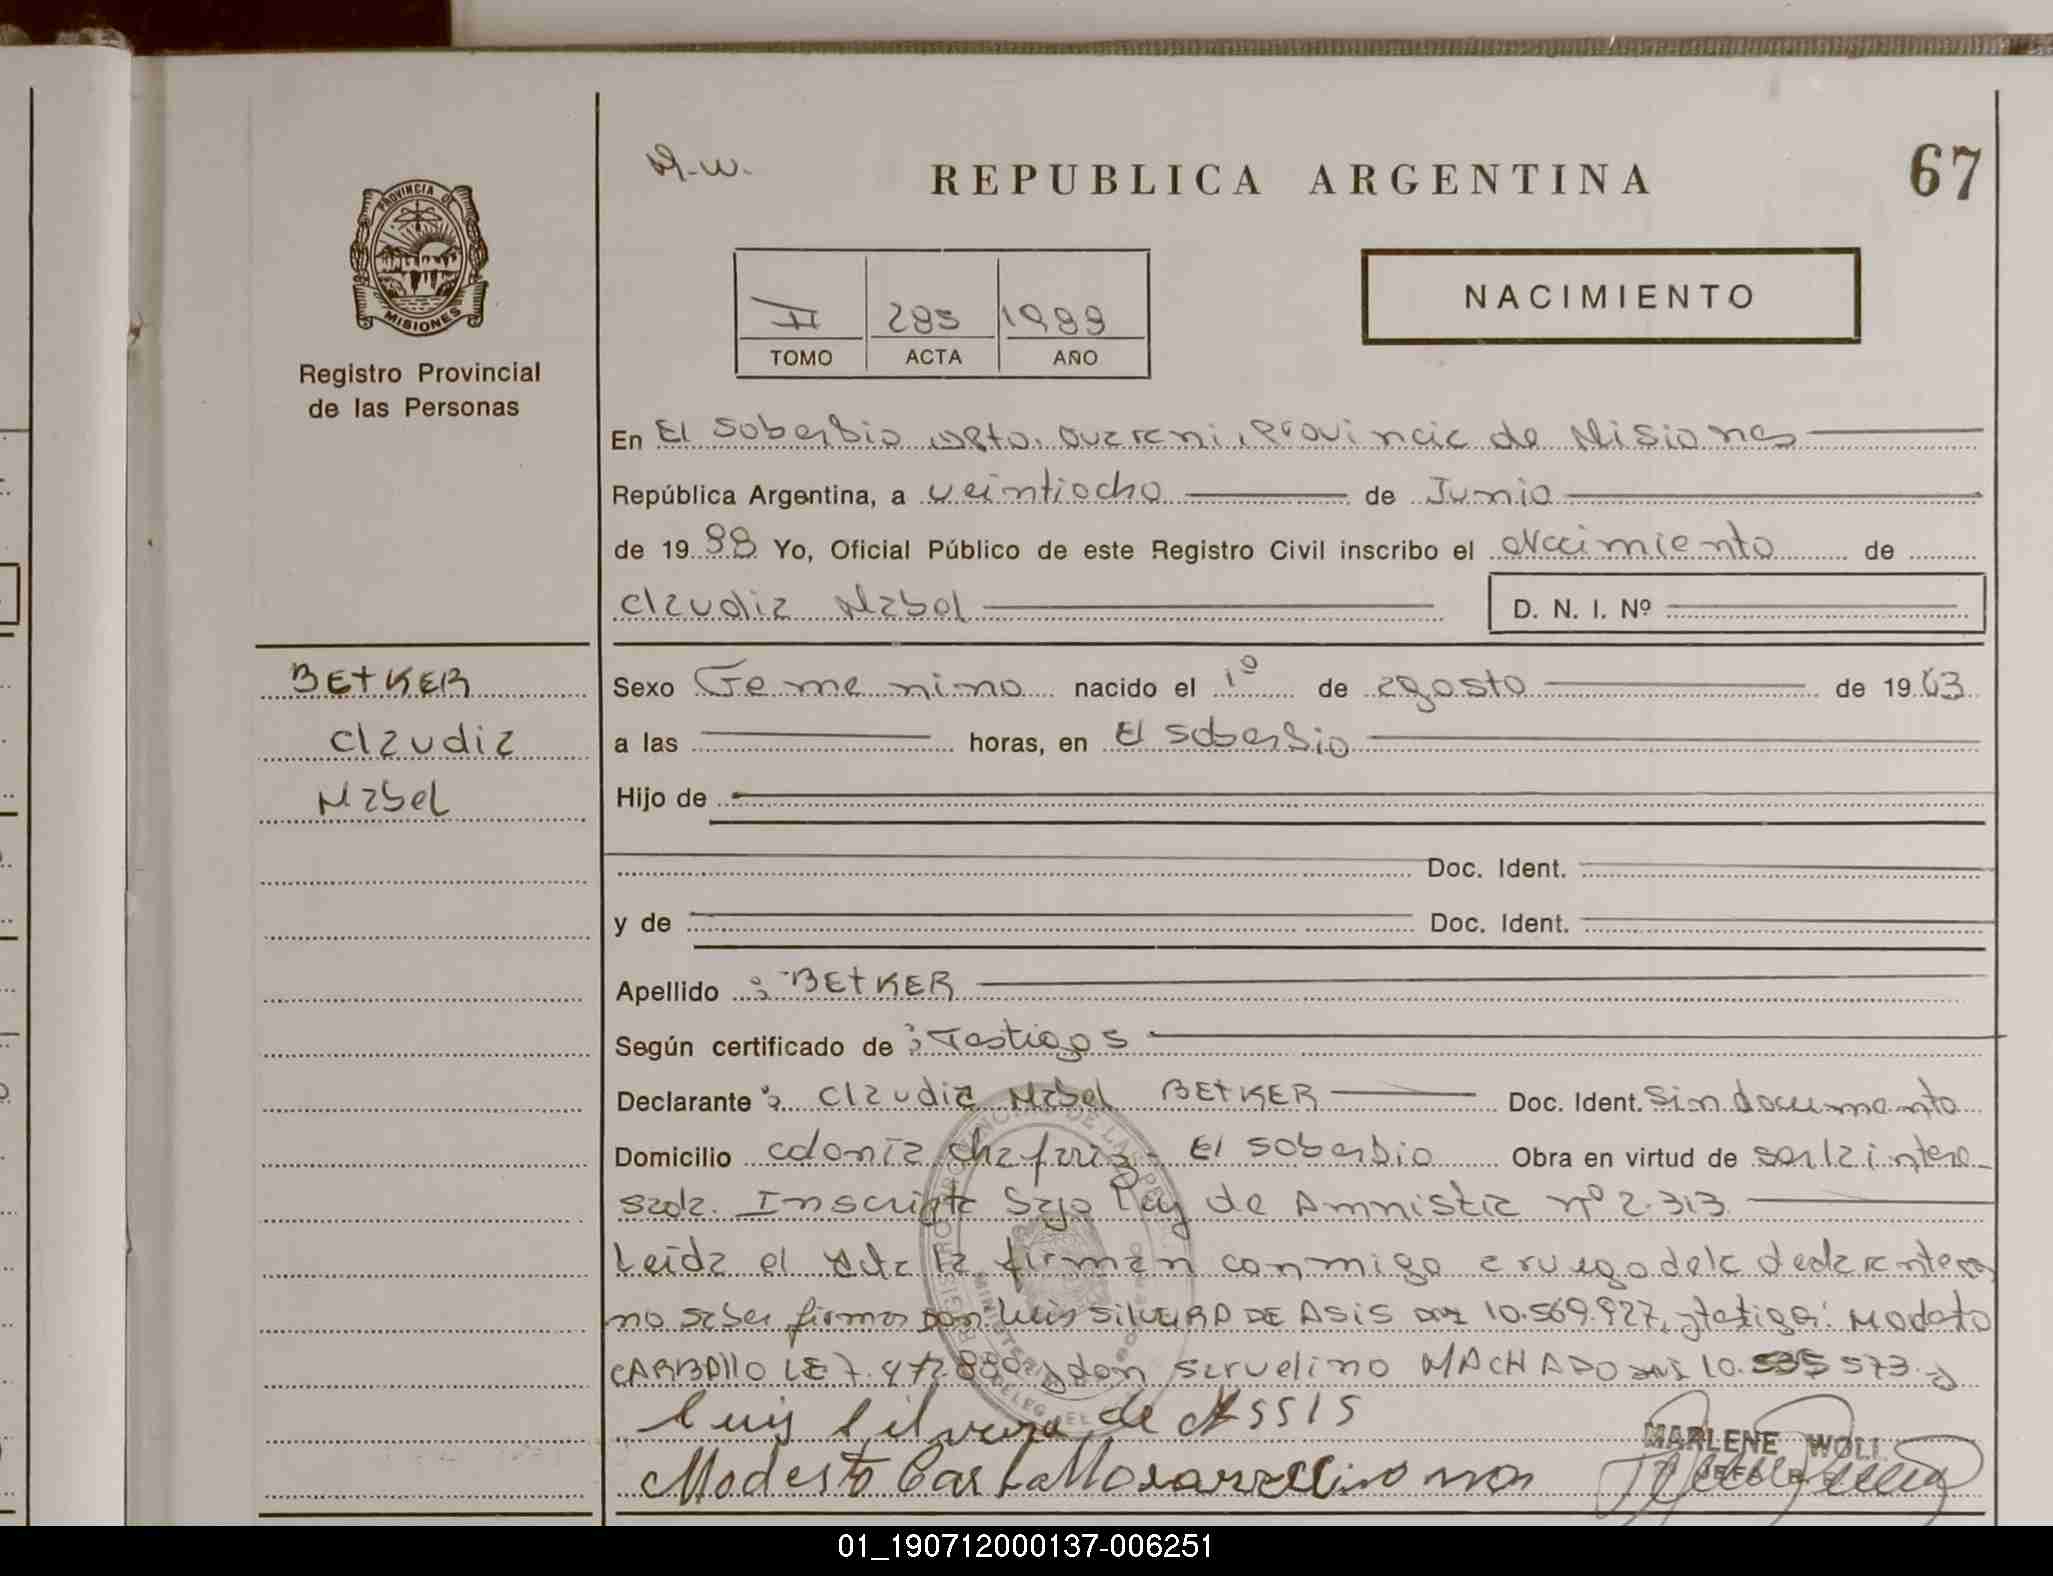 M.W.
REPUBLICA ARGENTINA
67
PROVINCIA DE
MISIONES
Registro Provincial
de las Personas
II 285
TOMO ACTA AÑO
NACIMIENTO
En El Soberbio, Dpto. Guarani, Provincia de Misiones
República Argentina, a veintiocho de Junio
de 19 Yo, Oficial Público de este Registro Civil inscribo el Nacimiento de
Claudia Mabel
D. N. I. Nº
BETKER
Claudia
Mabel
Sexo Femenino nacido el 1º de agosto de 1963
a las horas, en El Soberbio
Hijo de
Doc. Ident.
y de Doc. Ident.
Apellido : BETKER
Según certificado de : Testigos
Declarante : Claudia Mabel BETKER Doc. Ident. Sin documento
Domicilio colonia - El Soberbio Obra en virtud de ser la intere-
sada. Inscripta bajo Ley de Amnistia nº 2.313
Leida el Acta la firman conmigo a ruego de la declarante por
no saber firmar Don Luis SILVERA DE ASIS DNI 10.569.927, y testigo: Modesto
CARBALLO LE 7. y don MACHADO DNI 10. 573.
Luis Silvera de ASSIS
Modesto Carballo
MARLENE WOLL
01_190712000137-006251